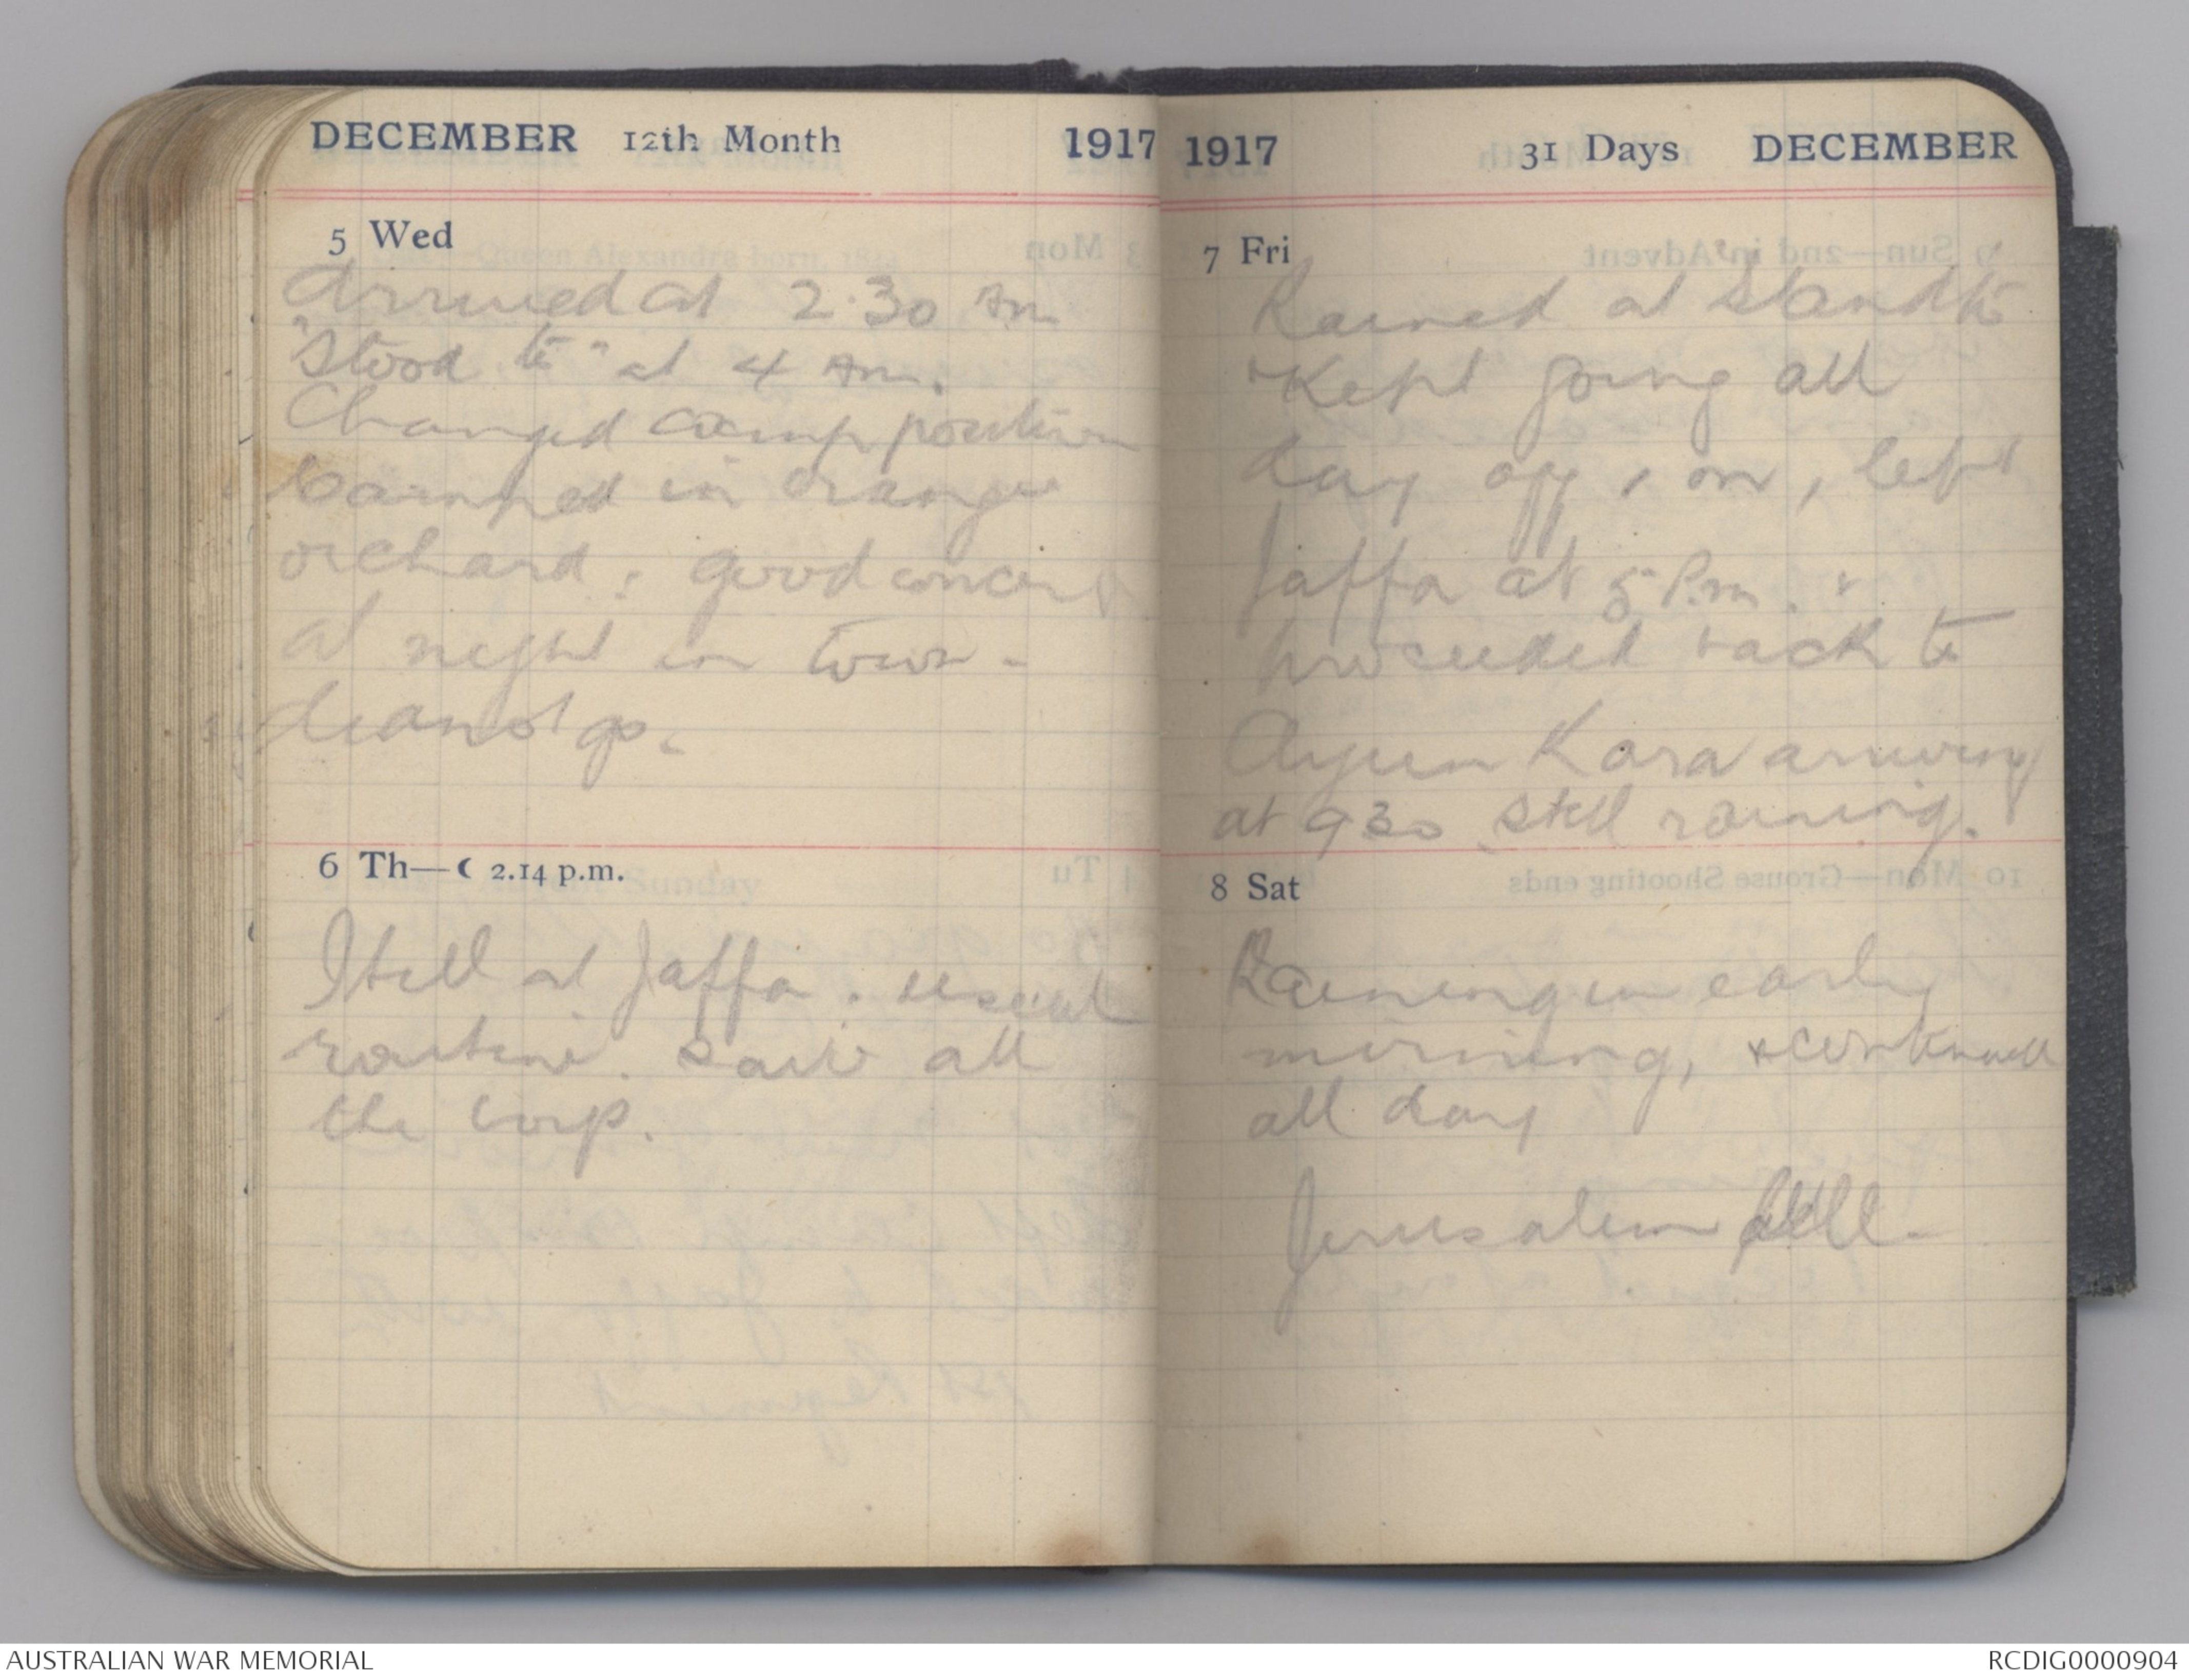 DECEMBER 12th Month 1917
5 Wed
Arrived at 2.30 Am
"Stood to" at 4 Am.
Changed camp position
camped in orange
orchard, good concert
at night in town -
did not go.
6 Th—☾ 2.14 p.m.
Still at Jaffa. usual
routine. Saw all
the Corp.
1917 31 Days DECEMBER
7 Fri
Rained at Stand to
& Kept going all
day off & on, left
Jaffa at 5 P.m. &
proceeded back to
Ayun Kara arriving
at 930 still raining.
8 Sat
Raining in early
morning, & continued
all day
Jerusalem fell.
AUSTRALIAN WAR MEMORIAL
RCDIG0000904